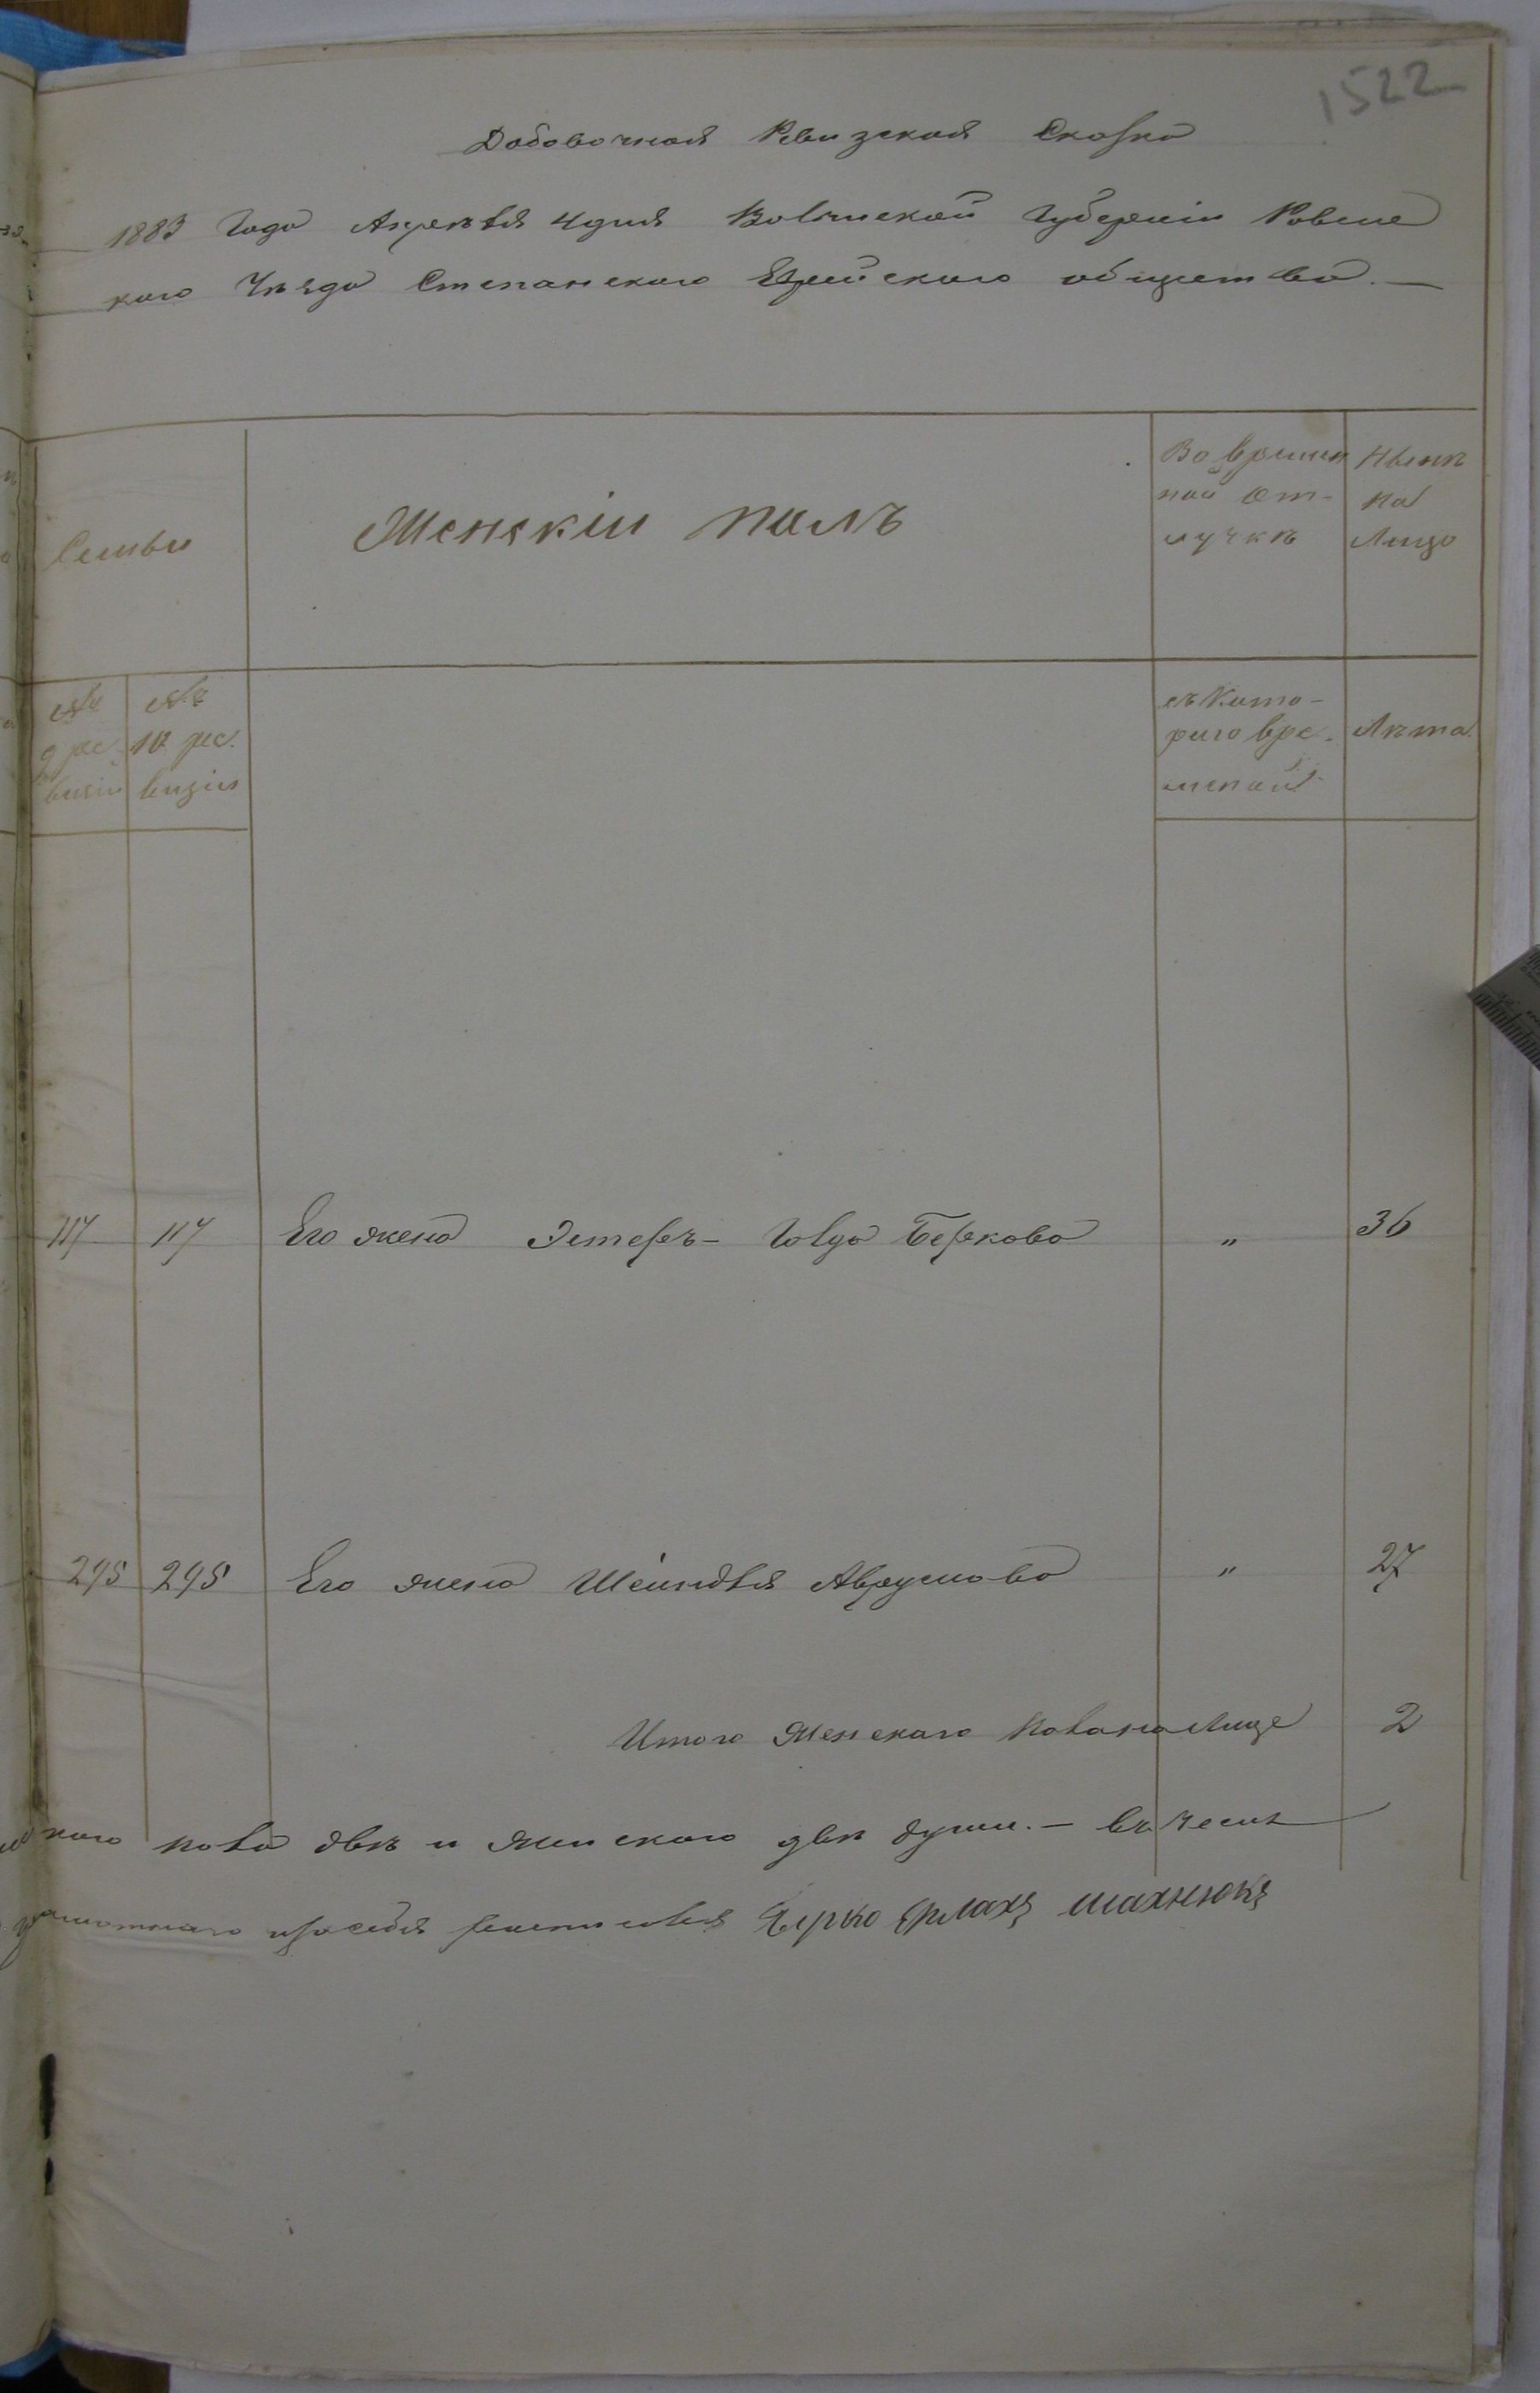 1522
Добовочная Ревизская Сказка
1883 Года Апреля 4 дня Волынской Губерніи Ровенс
кого Уѣзда Степанского Еврейского общества.—
Семьи
Женскій полъ
Во времен
ной от-
лучкѣ
Нынѣ
на
Лицо
№
9 ре
визіи
№
10 ре.
визіи
съ Кото-
рого вре.
Лѣта
117 117 Его жена Эстеръ- Голда Беркова " 36
295 295 Его жена Шейндля Аврумова " 27
Итого Женского пола на Лице 2
кого пола двѣ и женского двѣ души. —